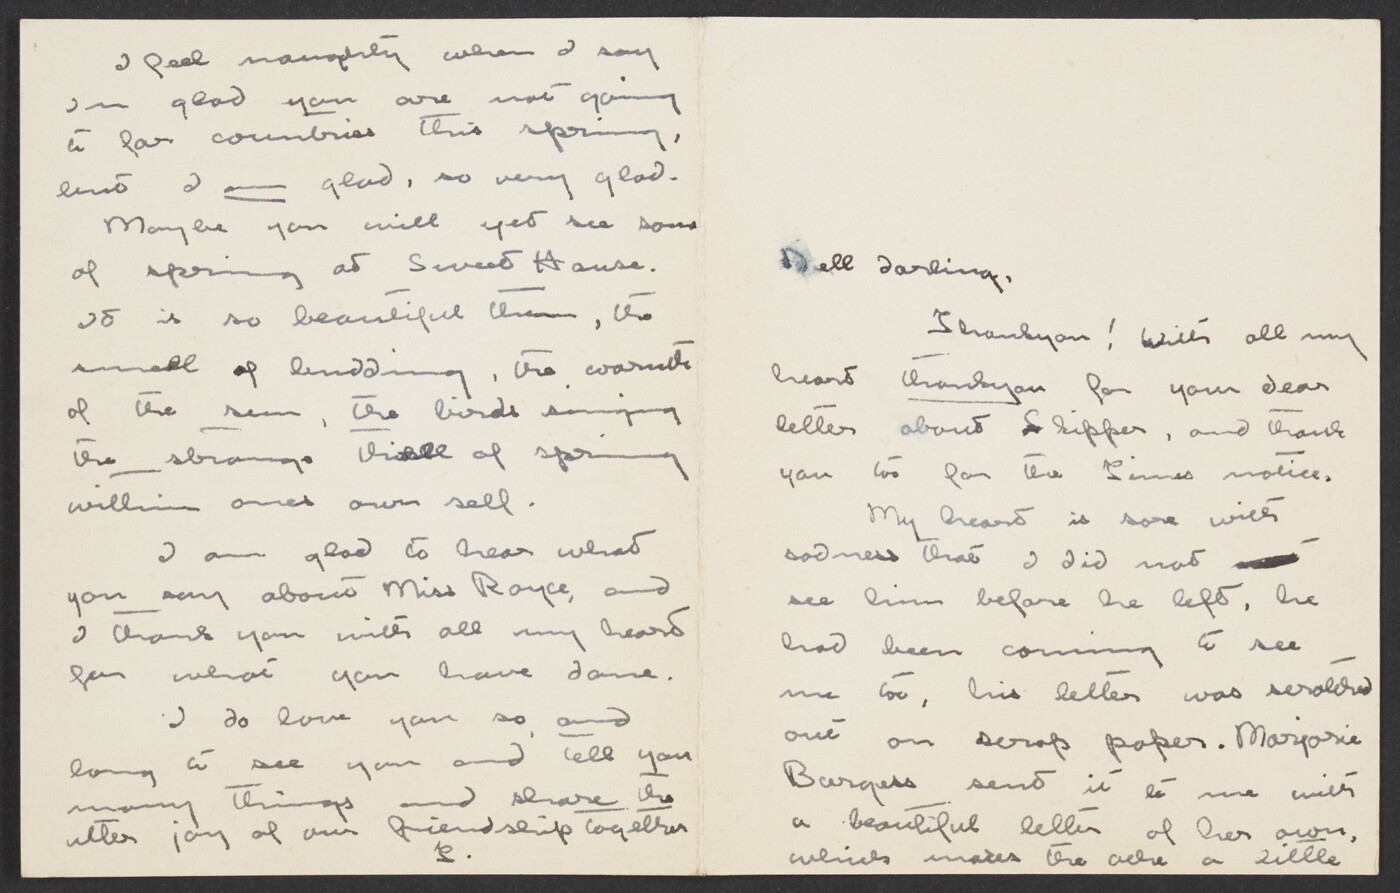 I feel naughty when I say
I'm glad you are not going
to far countries this spring,
but I am glad, so very glad.
Maybe you will yet see some
of spring at Sweet House.
It is so beautiful then, the
smell of budding, the warmth
of the sun, the birds singing
the strange thrill of spring
within ones own self.
I am glad to hear what
you say about Miss Royce, and
I thank you with all my heart
for what you have done.
I do love you so, and
long to see you and tell you
many things and share the
utter joy of our friendship together
E.
Dell darling,
Thankyou! With all my
heart thankyou for your dear
letter about Skipper, and thank
you too for the Times notice.
My heart is sore with
sadness that I did not
see him before he left, he
had been coming to see
me too, his letter was scratched
out on scrap paper. Marjorie
Burgess sent it to me with
a beautiful letter of her own,
which makes the ache a little